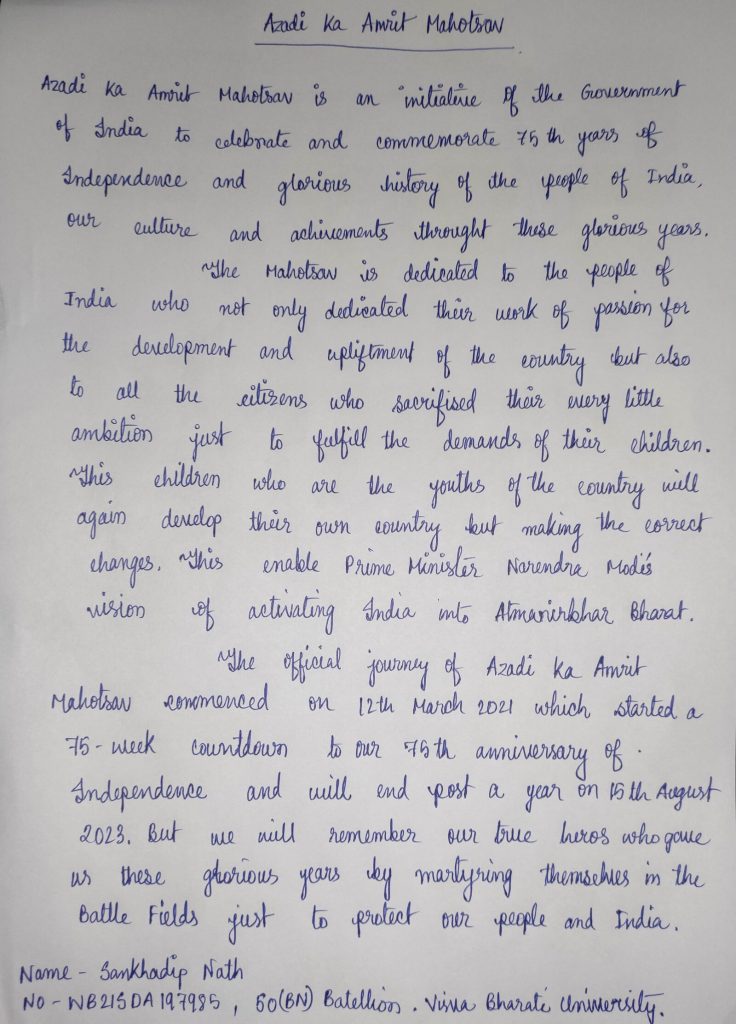 Azadi Ka Amrit Mahotsav
Azadi Ka Amrit Mahotsav is an initiative Of the Government
of India to celebrate and commemorate 75th years of
Independence and glorious history of the people of India,
our culture and achievements throught these glorious years.
The Mahotsav is dedicated to the people of
India who not only dedicated their work of passion for
the development and upliftment of the country but also
to all the citizens who sacrifised their every little
ambition just to fulfill the demands of their children.
This children who are the youths of the country will
again develop their own country but making the correct
changes. This enable Prime Minister Narendra Modi's
vision of activating India into Atmanirbhar Bharat.
The official journey of Azadi Ka Amrit
Mahotsav commenced on 12th March 2021 which started a
75-week countdown to our 75th anniversary of
Independence and will end post a year on 15th August
2023. But we will remember our true heros who gave
us these glorious years by martyring themselves in the
Battle Fields just to protect our people and India.
Name - Sankhadip Nath
NO - WB21SDA197985, 50(BN) Batellion. Visva Bharati University.